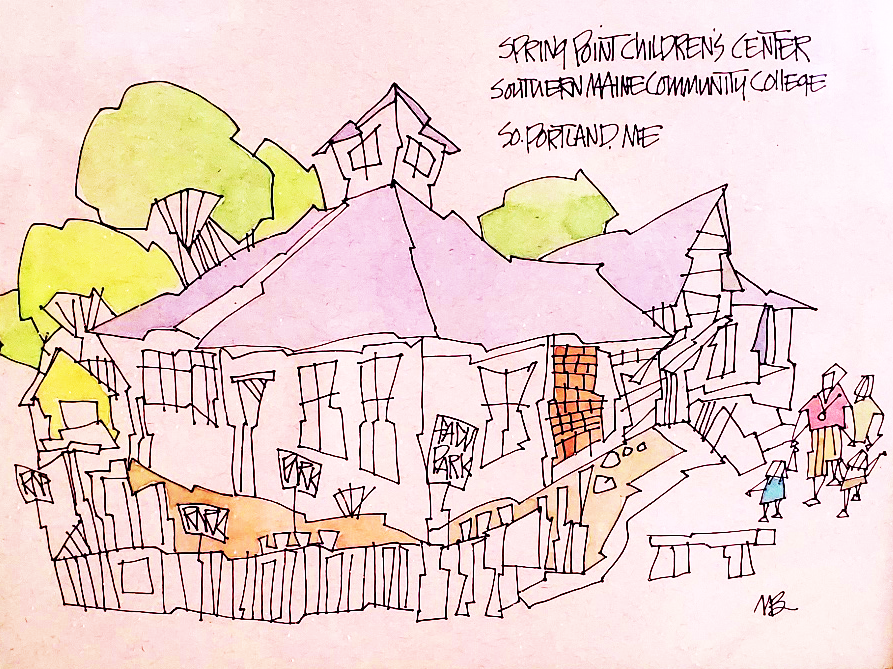 SPRING POINT CHILDREN'S CENTER
SOUTHERN MAINE COMMUNITY COLLEGE
SO. PORTLAND. ME
PARK
MB